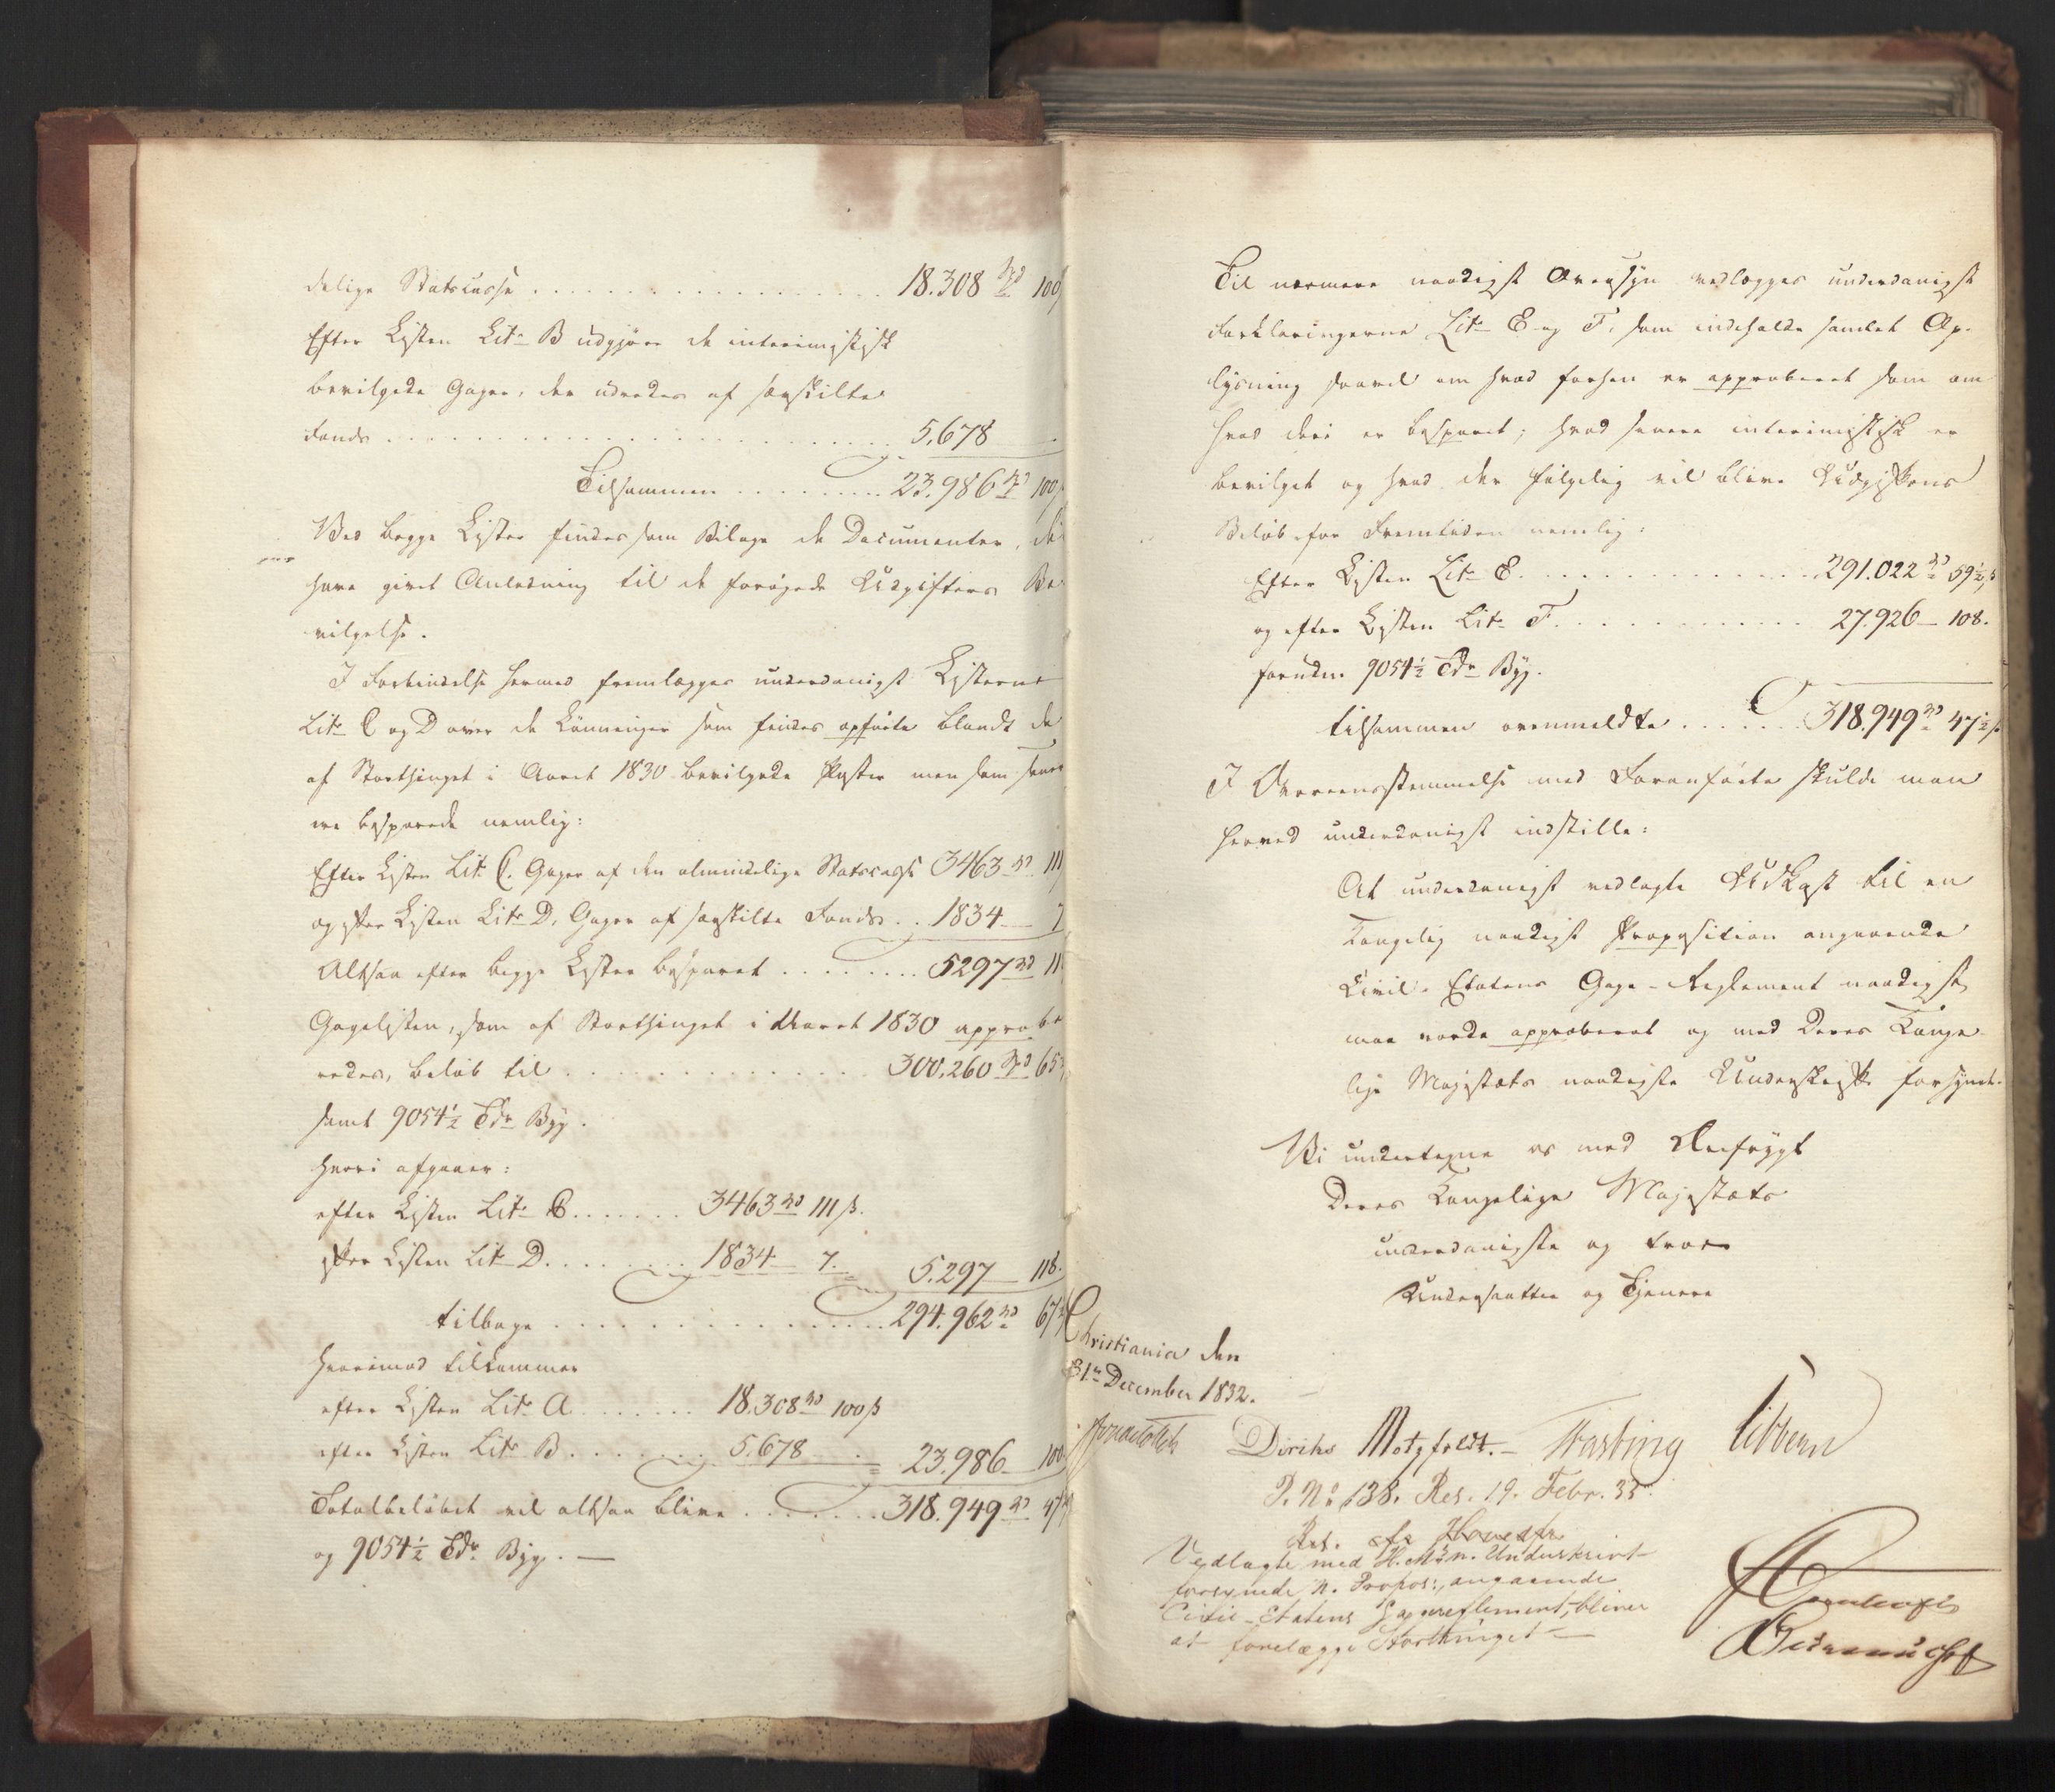 delige Statscasse . . . . . . 18.308 Spd 100 ß
Efter Listen Litr. B udgjøre de interimistisk
bevilgede Gager, der udredes af særskilte
Fonds . . . . . . 5.678 —
Tilsammen . . . . . . 23.986 Spd 100 ß
Ved begge Lister findes som Bilage de Documenter, der
have givet Anledning til de forøgede Udgifters Be-
vilgelse.
I Forbindelse hermed fremlægges underdanigst Listerne
Litr. C og D over de Lønninger som findes opførte blandt de
af Storthinget i Aaret 1830 bevilgede Poster men som senere
ere besparede nemlig:
Efter Listen Litr. C. Gager af den almindelige Statscasse 3463 Spd 111
og efter Listen Litr. D. Gager af særskilte Fonds . . 1834 — 7
Altsaa efter begge Lister besparet . . . . . . 5297 Spd 11
Gagelisten, som af Storthinget i Aaret 1830 approbe-
redes, beløb til . . . . . . 300.260 Spd 65
samt 9054½ Tdr Byg.
Hvori afgaaer:
efter Listen Litr. C . . . . . . 3463 Spd 111 ß.
efter Listen Litr. D . . . . . . 1834 — 7. 5.297 — 118.
tilbage . . . . . . 294.962 Spd 67½
Hvorimod tilkommer
efter Listen Litr. A . . . . . . 18.308 Spd 100 ß
efter Listen Litr. B . . . . . . 5.678 — 23.986 — 100
Totalbeløbet vil altsaa blive . . . . . . 318.949 Spd 47½
og 9054½ Tdr. Byg. —
Til nærmere naadigst Oversyn vedlægges underdanigst
Forklaringerne Litr. E og F, som indeholde samlet Op-
lysning saavel om hvad forhen er approberet som om
hvad deri er besparet; hvad senere interimistisk er
bevilget og hvad der følgelig vil blive Udgiftens
Beløb for Fremtiden nemlig:
Efter Listen Litr. E . . . . . . 291.022 Spd 59½ ß
og efter Listen Litr. F . . . . . . 27.926 — 108.
foruden 9054½ Tdr Byg.
tilsammen ovenmeldte . . . . . . 318.949 Spd 47½ ß
I Overeensstemmelse med Foranførte skulde man
herved underdanigst indstille:
At underdanigst vedlagte Udkast til en
Kongelig naadigst Proposition angaaende
Civil-Etatens Gage-Reglement naadigst
maa vorde approberet og med Deres Konge-
lige Majestæts naadigste Underskrift forsynet.
Vi undertegne os med Ærefrygt
Deres Kongelige Majestæts
underdanigste og troe
Undersaatter og Tjenere
Christiania den
31te December 1832.
Diriks Motzfeldt. — Fasting Sibbern
P. No 138. Res. 19. Febr. 33.
Vedlagte med H. M. n. Underskrivt
forsynede n. Propos:, angaaende
Civil-Etatens Gagereglement, bliver
at forelægge Storthinget —